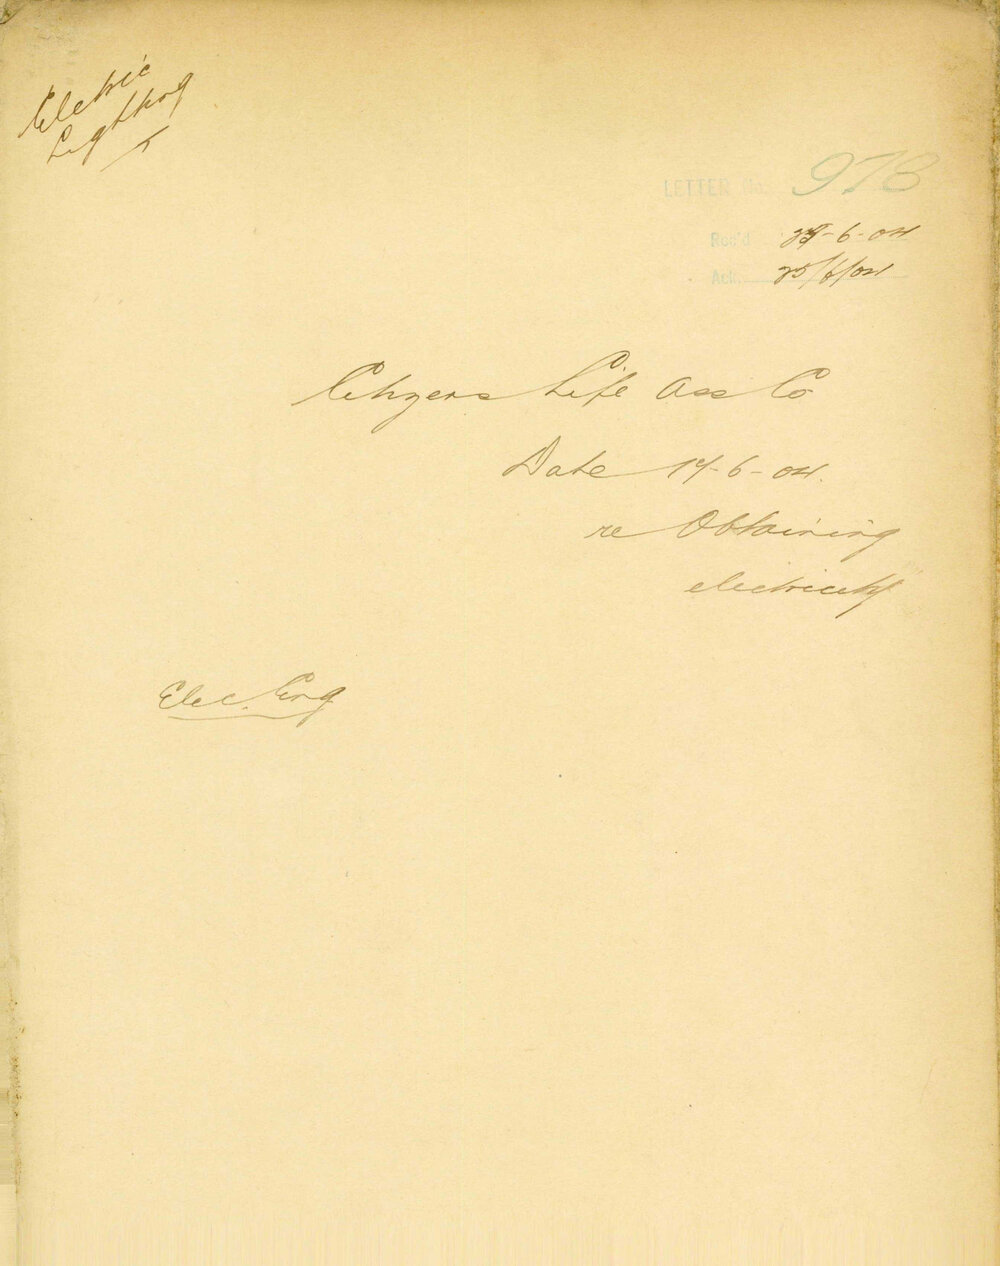 Electric
Lighting
LETTER No. 978
Rec'd 24-6-04
Ack. 25/6/04
Citizens Life Ass Co
Date 17-6-04.
re Obtaining
electricity
Elec. Eng